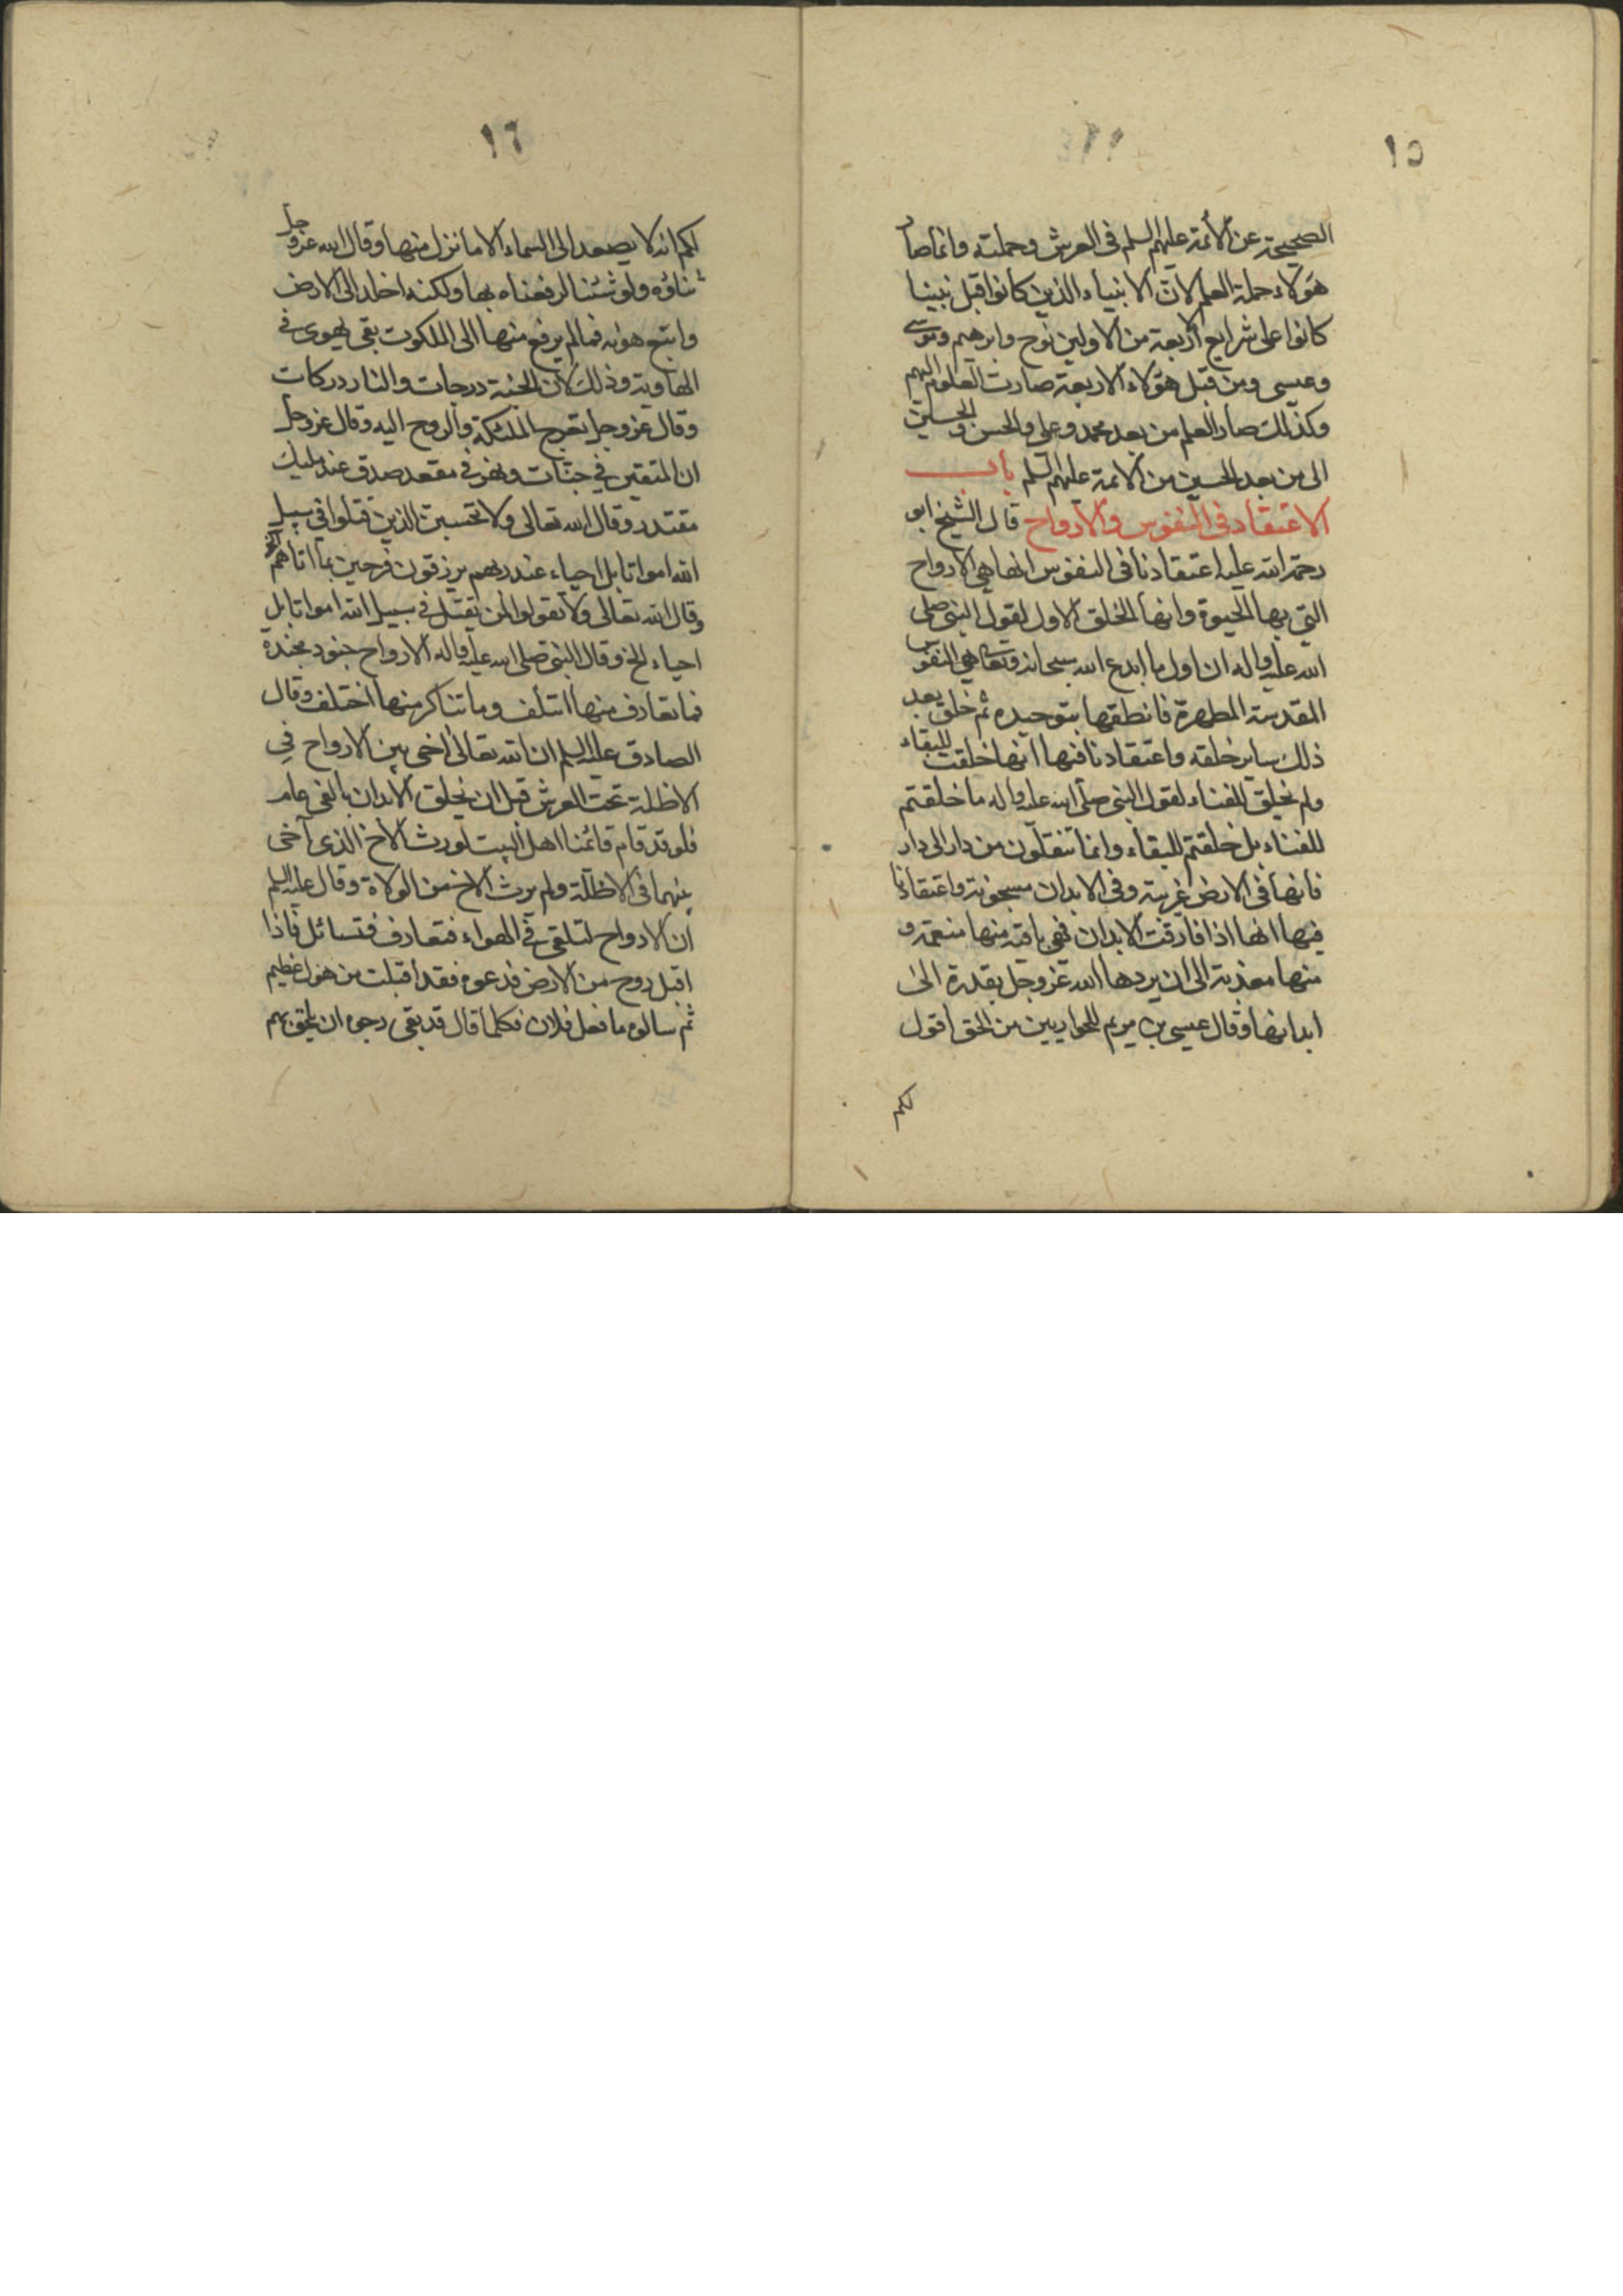 ١٥
الصحيحة عن الأئمة عليهم السلم فى العرش وحملته وانما صار
هؤلاء حملة العلم لانّ الانبياء الذين كانوا قبل نبينا
كانوا على شرايع الاربعة من الاولين نوح وابرهيم وموسى
وعيسى ومن قبل هؤلاء الاربعة صارت العلوم اليهم
وكذلك صار العلم من بعد محمد وعلى والحسن والحسين
الى من بعد الحسين من الائمة عليهم السلم باب
الاعتقاد فى النفوس والارواح قال الشيخ ابو
رحمة الله عليه اعتقادنا فى النفوس انها هي الارواح
التي بها الحيوة وانها الخلق الاول لقول النبى صلى
الله عليه واله ان اول ما ابدع الله سبحانه وتعا هي النفوس
المقدسة المطهرة فانطقها بتوحيده ثم خلق بعد
ذلك ساير خلقه واعتقادنا فيها انها خلقت للبقاء
ولم تخلق للفناء لقول النبى صلى الله عليه واله ما خلقتم
للفناء بل خلقتم للبقاء وانما تنقلون من دار الى دار
فانها فى الارض غريبة وفى الابدان مسجونة واعتقادنا
فيها انها اذا فارقت الابدان فهى باقية منها منعمة و
منها معذبة الى ان يردها الله عز وجل بقدرة الى
ابدانها وقال عيسى بن مريم للحواريين من الحق اقول
لكم
١٦
لكم انه لا يصعد الى السماء الا ما نزل منها وقال الله عز وجل
ثناؤه ولو شئنا لرفعناه بها ولكنه اخلد الى الارض
واتبع هواه فما لم يرفع منها الى الملكوت بقى يهوى في
الهاوية وذلك لان الجنة درجات والنار دركات
وقال عز وجل تعرج الملئكة والروح اليه وقال عز وجل
ان المتقين في جنات ونهر في مقعد صدق عند مليك
مقتدر وقال الله تعالى ولا تحسبن الذين قتلوا في سبيل
الله امواتا بل احياء عند ربهم يرزقون فرحين بما اتاهم الخ
وقال الله تعالى ولا تقولوا لمن يقتل في سبيل الله امواتا بل
احياء الخ وقال النبى صلى الله عليه واله الارواح جنود مجندة
فما تعارف منها ائتلف وما تناكر منها اختلف وقال
الصادق عليه السلم ان الله تعالى اخى بين الارواح في
الاظلة تحت العرش قبل ان يخلق الابدان بالفى عام
فلو قد قام قائمنا اهل البيت لورث الاخ الذى آخى
بينهما فى الاظلّة ولم يرث الاخ من الولادة وقال عليه السلم
ان الارواح لتلتقى في الهواء فتعارف فتسائل فاذا
اقبل روح من الارض فدعوه فقد اقبلت من هول عظيم
ثم سالوه ما فعل فلان فكلما قال قد بقى رجوه ان يلحق بهم